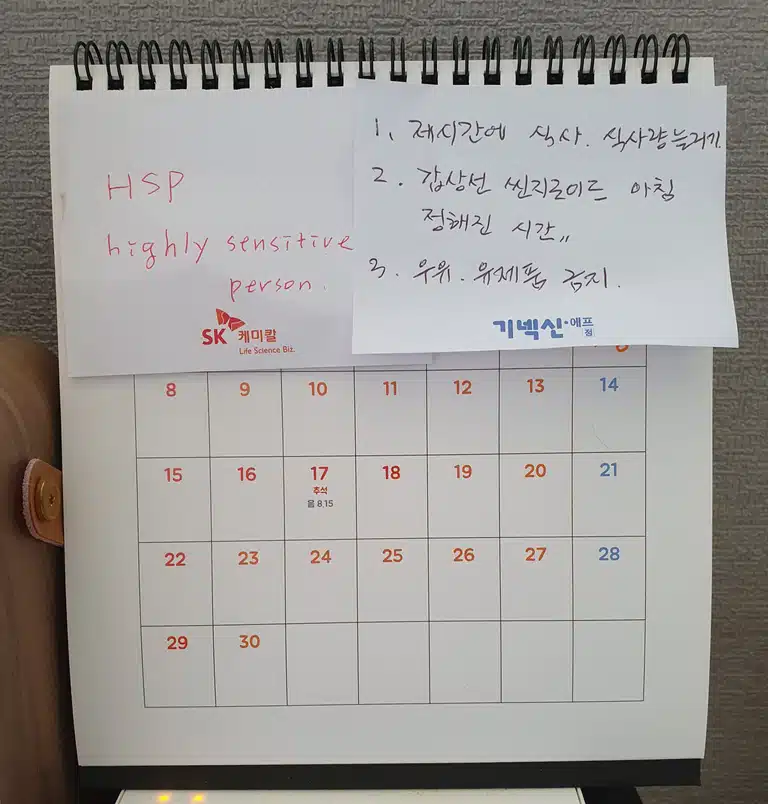 HSP
highly sensitive
person.
SK 케미칼
Life Science Biz.
1. 제시간에 식사. 식사량늘리기.
2. 갑상선 씬지로이드 아침
정해진 시간〃
3. 우유. 유제품 금지.
기넥신·에프
정
8 9 10 11 12 13 14
15 16 17 18 19 20 21
추석
음 8.15
22 23 24 25 26 27 28
29 30